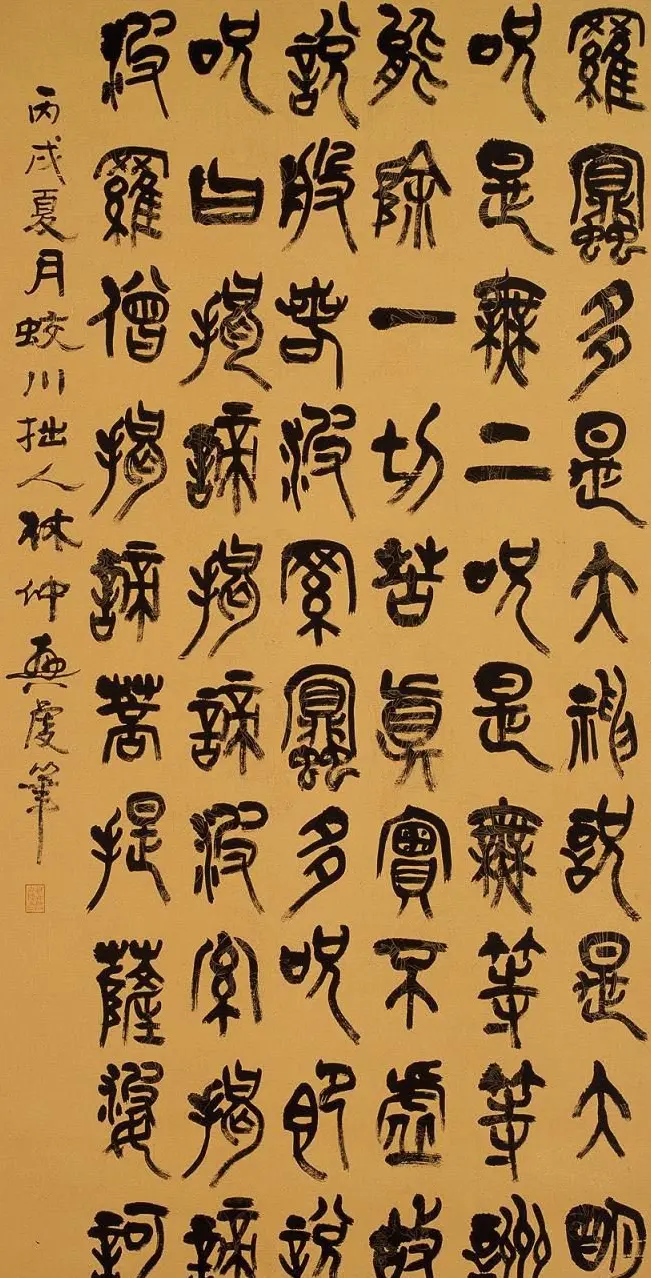 羅蜜多是大神呪是大明
呪是無上呪是無等等詶
能除一切苦真實不虛故
說般若波羅蜜多呪即說
呪曰揭諦揭諦波羅揭諦
波羅僧揭諦菩提薩婆訶
丙戌夏月蛟川拙人林仲興虔筆